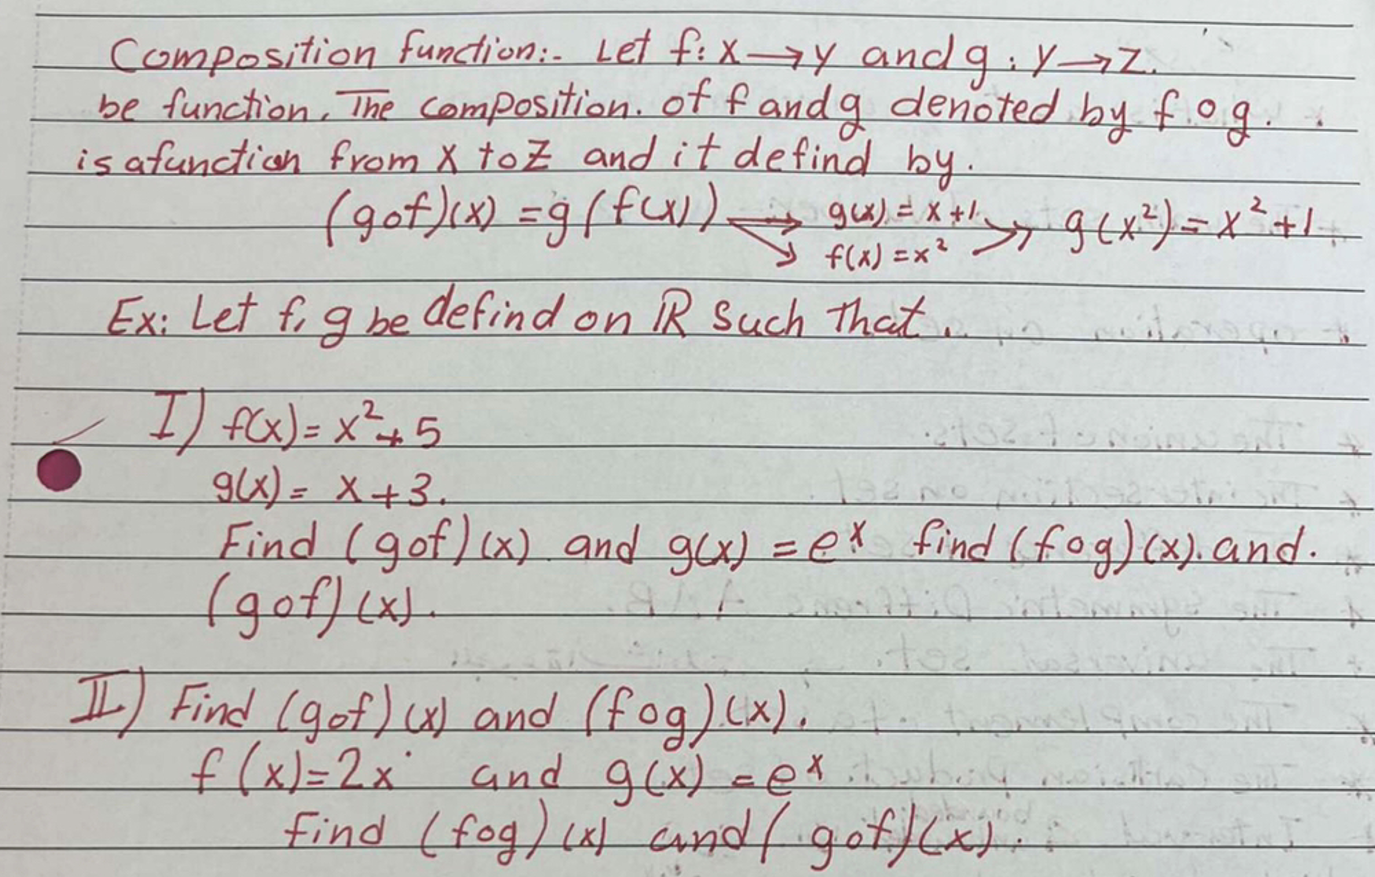 Composition function:- Let f: x → y and g: y → z.
be function. The composition. of f and g denoted by f o g.
is a function from x to z and it defind by.
(gof)(x) = g(f(x)) → g(x) = x+1 → g(x²) = x²+1
↘ f(x) = x²
Ex: Let f, g be defind on ℝ such that.
I) f(x) = x²+5
g(x) = x+3.
Find (gof)(x) and g(x) = eˣ find (fog)(x). and.
(gof)(x).
II) Find (gof)(x) and (fog)(x).
f(x)=2x and g(x) = eˣ
find (fog)(x) and (gof)(x).